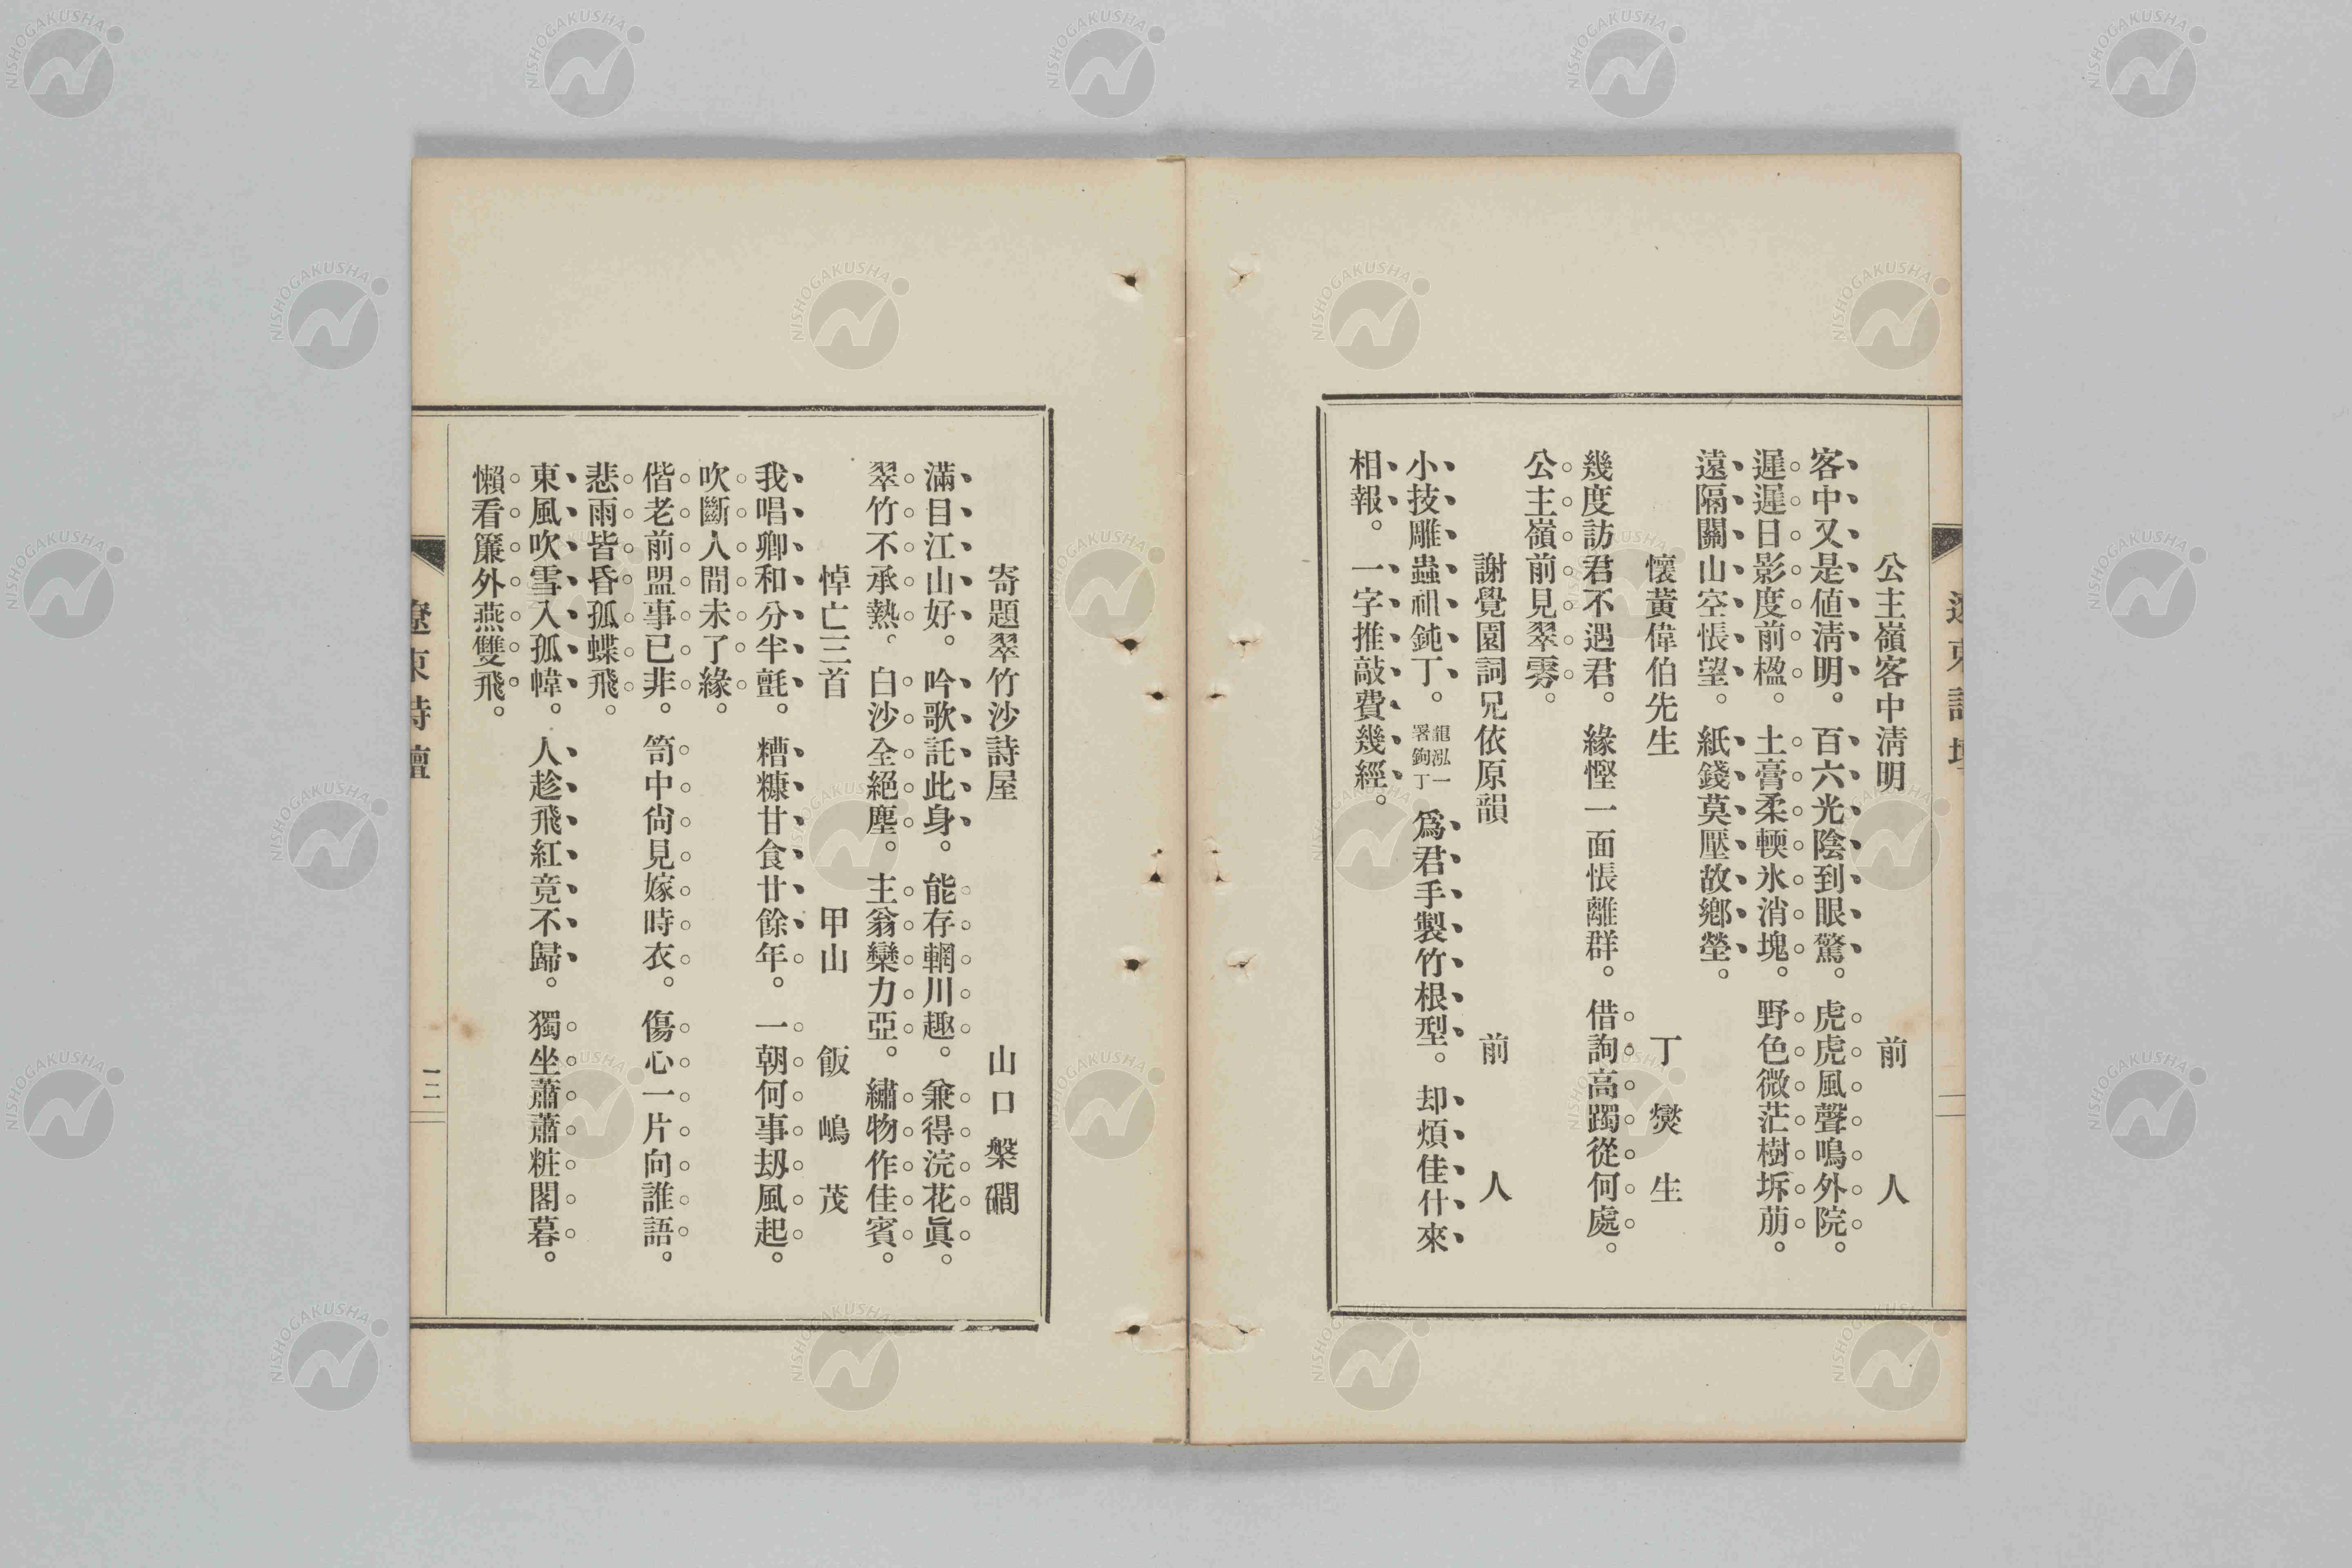 公主嶺客中淸明　前人
客中又是値淸明。百六光陰到眼驚。虎虎風聲鳴外院。
遲遲日影度前楹。土膏柔輭氷消塊。野色微茫樹坼萠。
遠隔關山空悵望。紙錢莫壓故鄕塋。
懷黃偉伯先生　丁爕生
幾度訪君不遇君。緣慳一面悵離群。借詢高躅從何處。
公主嶺前見翠雰。
謝覺園詞兄依原韻　前人
小技雕蟲祖鈍丁。龍泓一署鈍丁為君手製竹根型。却煩佳什來
相報。一字推敲費幾經。
寄題翠竹沙詩屋　山口槃磵
滿目江山好。吟歌託此身。能存輞川趣。兼得浣花眞。
翠竹不承熱。白沙全絕塵。主翁欒力亞。繡物作佳賓。
悼亡三首　甲山　飯嶋茂
我唱卿和分半氈。糟糠甘食廿餘年。一朝何事刼風起。
吹斷人間未了緣。
偕老前盟事已非。笥中尙見嫁時衣。傷心一片向誰語。
悲雨皆昏孤蝶飛。
東風吹雪入孤幃。人趁飛紅竟不歸。獨坐蕭蕭粧閣暮。
懶看簾外燕雙飛。
遼東詩壇
一二
NISHOGAKUSHA